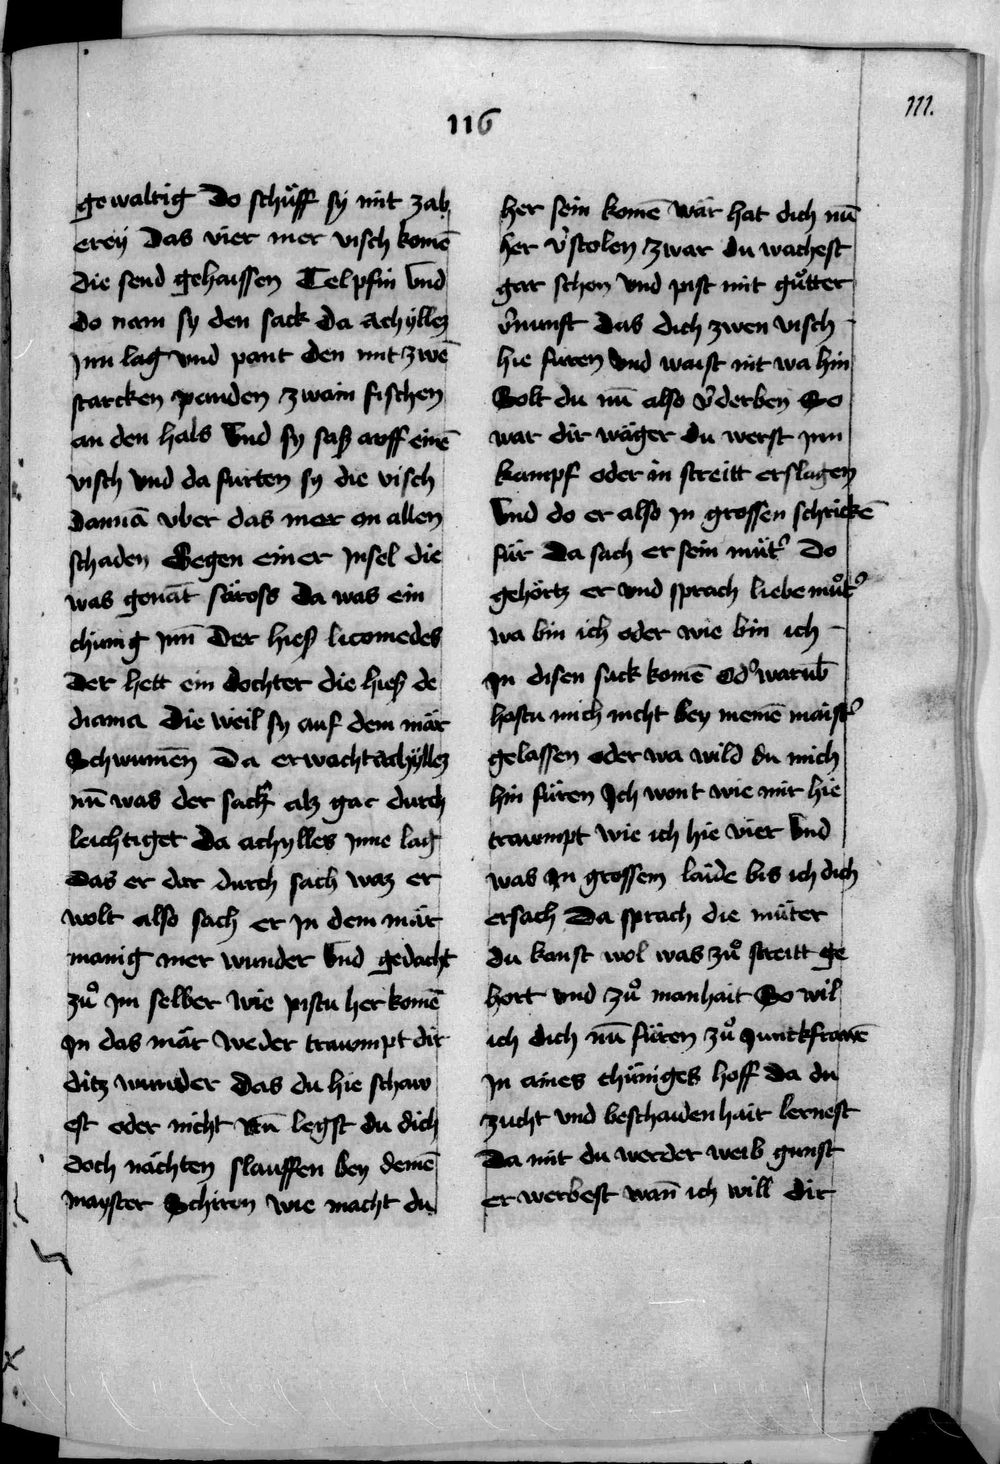 116
111.
gewaltig Do schüff sy mit zab
ereÿ Das vier mer visch komē
die send gehaissen Telpfin Vnd
do nam sy den sack da Achÿlles
jnn lag vnd pant den mit zwē
starcken panden zwain fischen
an den hals Vnd sy saß auff einē
visch vnd da furten sy die visch
dannā vber das mer on allen
schaden Gegen einer jnsel die
was genāt säross da was ein
chinig jnn Der hieß licomedes
Der hett ein dochter die hieß de
diama Die weil sy auf dem mär
Schwumēn Da erwacht Achÿlles
nū was der sack alz gar durch
leichtiget Da achylles jnne lag
Das er dar durch sach waz er
wolt also sach er jn dem mär
manig mer wunder Vnd gedacht
zuͦ jm selber wie pistu her komē
jn das mär weder traumpt dir
ditz wunder Das du hie schaw
est oder nicht Nū legst du dich
doch nächten slauffen bey deinē
mayster Schiron wie macht du
her sein komē wär hat dich nū
her v̉stolen zwar du wachest
gar schon vnd pist mit guͦtter
v̉nunft Das dich zwen visch
hie furen Vnd waist nit wa hin
Solt du nū also v̉derben So
war dir wäger du werst jnn
kampf oder in streitt erslagen
Vnd do er also jn grossen schrickē
für Da sach er sein müt̉ Do
gehörtz er vnd sprach liebe muͦt̉
wa bin ich oder wie bin ich
jn disen sack komē Od̉ warūb
hastu mich nicht bey meinē maist̉
gelassen oder wa wild du mich
hin füren Ich wont wie mir hie
traumpt wie ich hie vier Vnd
was jn grossem laide bis ich dich
ersach Da sprach die müter
du kanst wol was zuͦ streitt ge
hort vnd zuͦ manhait So wil
ich dich nū füren zuͦ junckfrawē
jn aines chüniges hoff Da du
zucht vnd beschaidenhait lernest
Da mit du werder weib gunst
er werbest wan̄ ich will dir